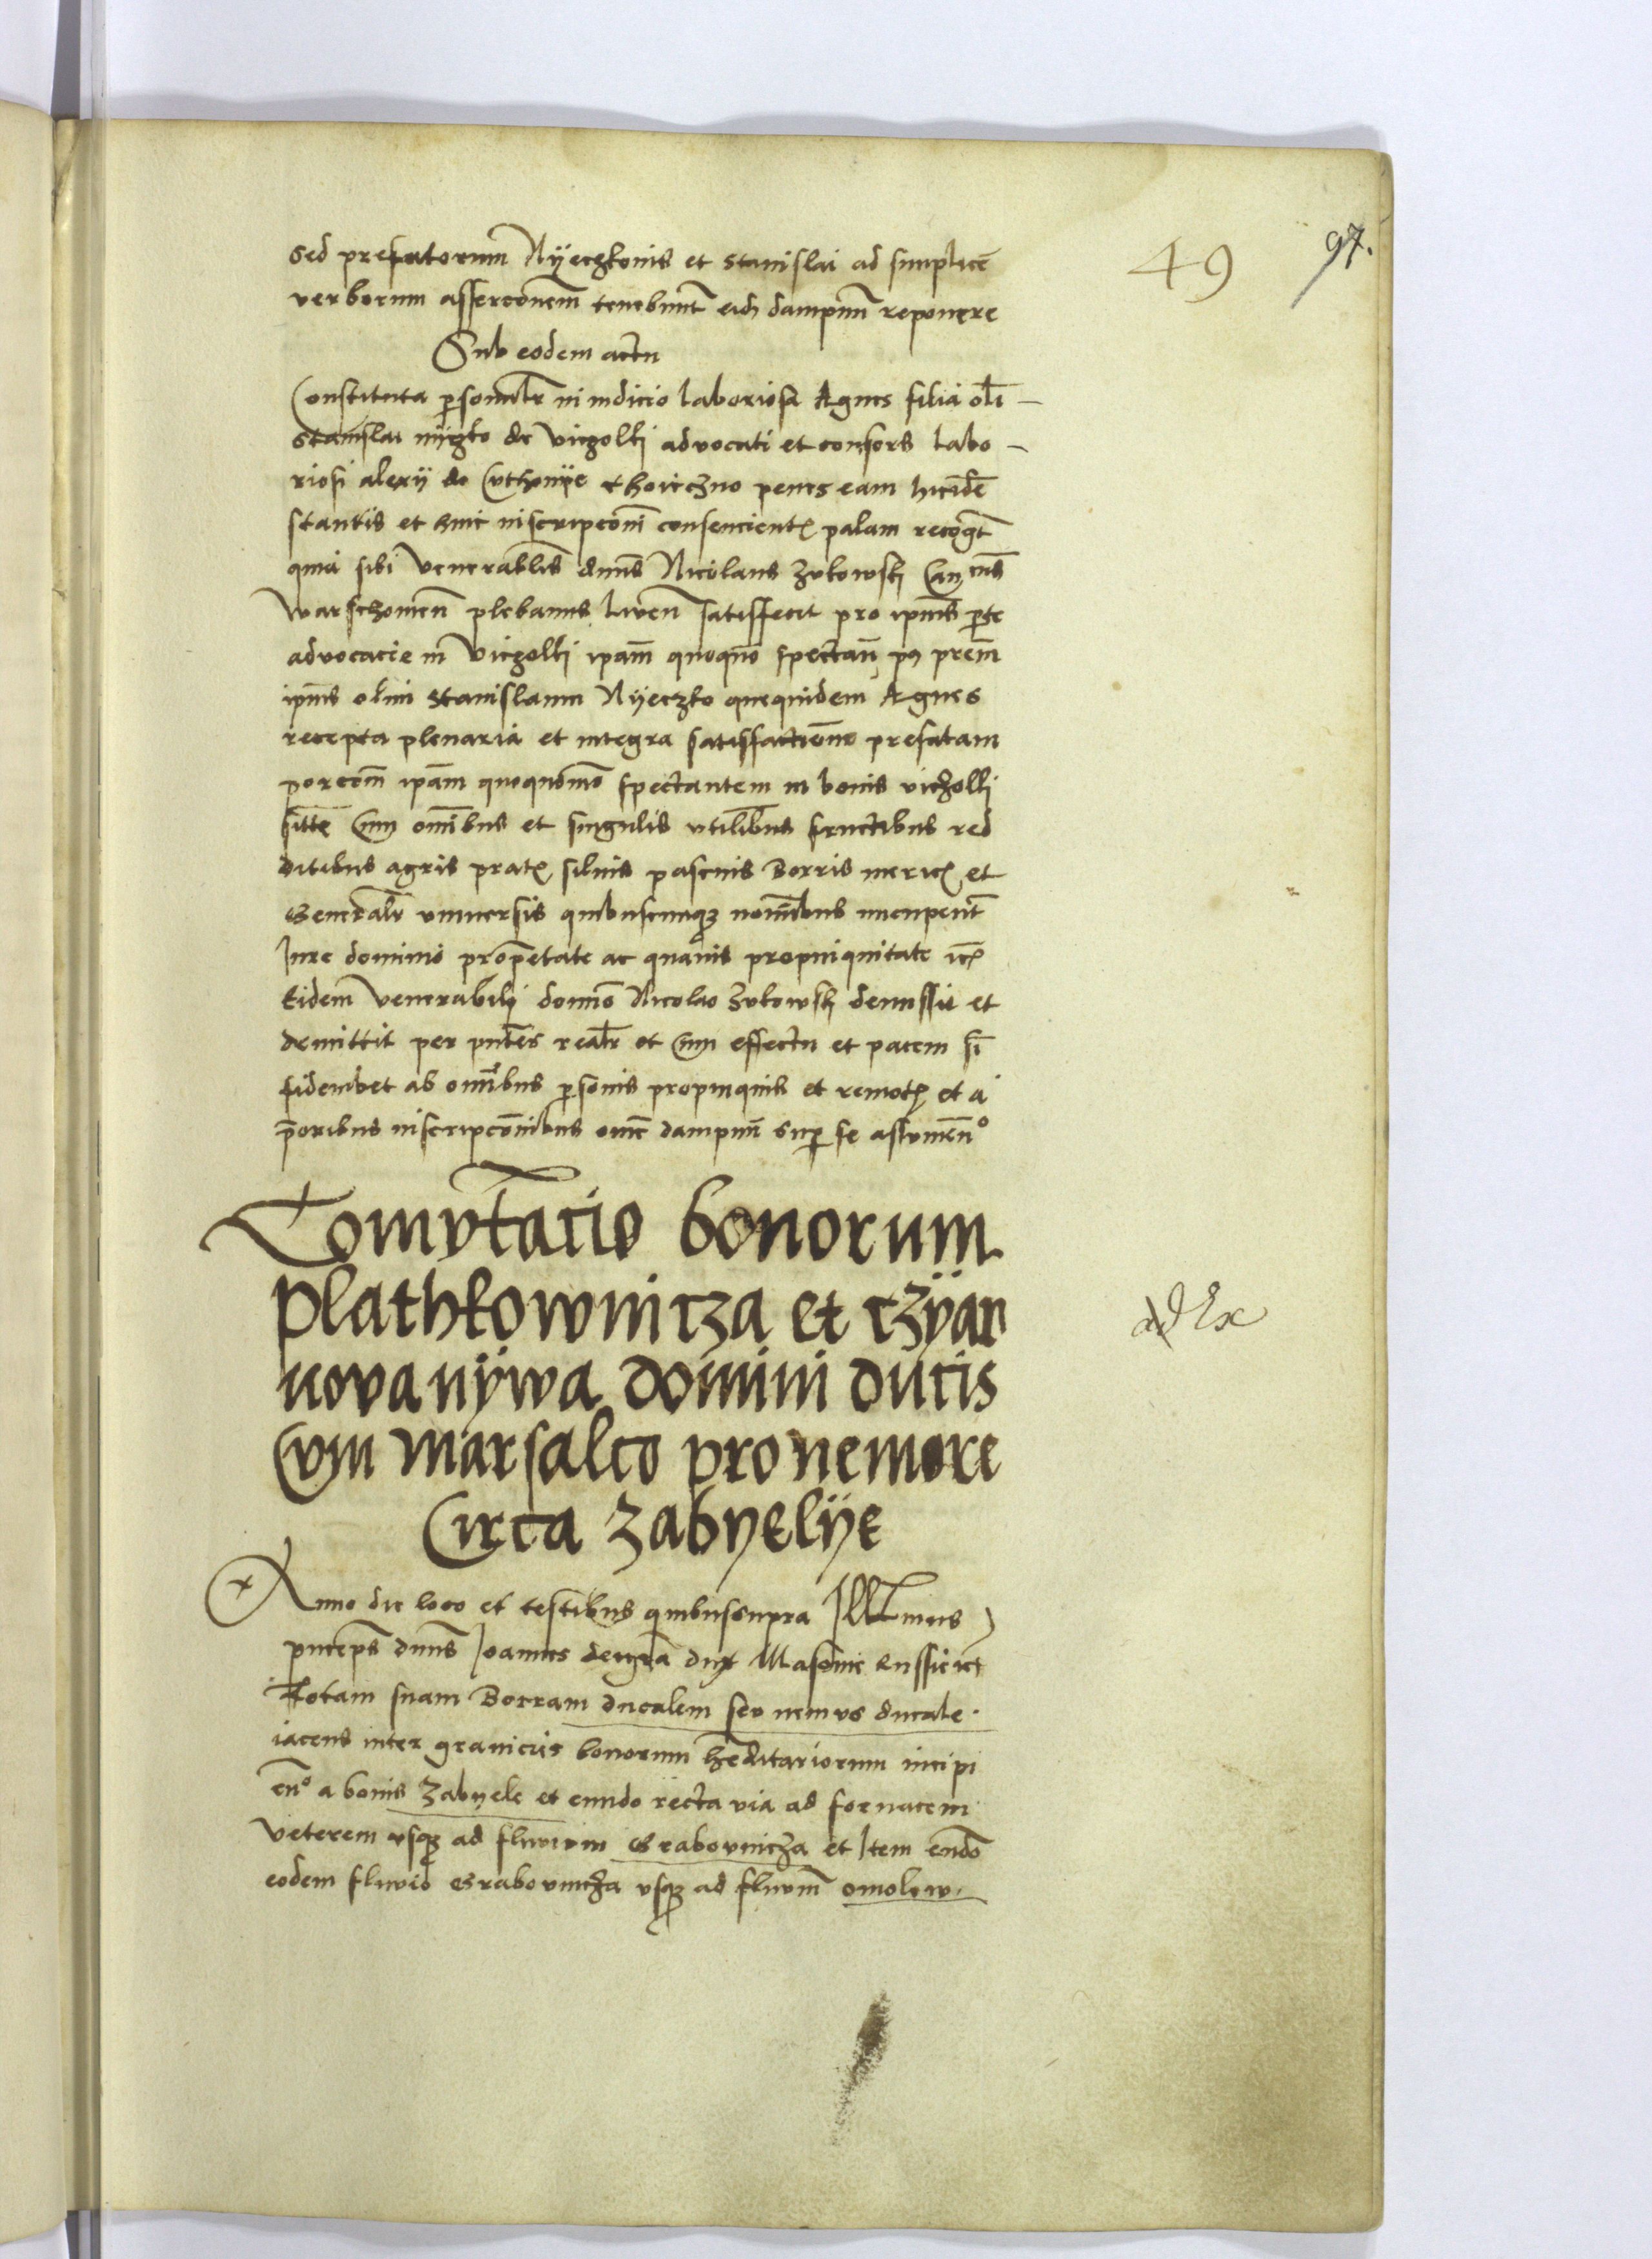 49
97.
sed prefatorum Nÿeczkonis et stanislai ad simplicē
verborum assercōnem tenebunt̄ eidē dampnū reponere
Sub eodem actu
Constituta p̄sonalr̄ in iudicio laboriosa Agnes filia oli
stanislai nÿczko de Viczolki advocati et consors labo
riosi alexÿ de penes eam ibidē
stantis et huic inscripcōni consencientꝭ palam recogt̄
quia sibi Venerablis̄ dn̄us Nicolaus Zukowskj Can cus̄
Warschouien̄ plebanus Liven̄ satisfecit pro ipīus pte
advocacie in Viczolki ipam̄ quoquō spectan̄ pꝰ prēm
ipīus olim Stanislaum Nÿeczko quequidem Agnes
recepta plenaria et integra satisfactiōne prefatam
porcōem ipām quoquōmō spectantem in bonis viczolki
sittē Cum om̄ibus et singulis vtilib̄us fructibus red
ditibus agris pratꝭ siluis pascuis Borris mericꝭ et
Generalr̄ vniuersis quibuscumqꝫ nom̄ibus nuncupent̄
Jure dominio prop̄etate ac quauis propinquitate icꝭ
Eidem Venerabili domīo Nicolao Zukowskj demissit et
demittit per pn̄tes realr̄ et Cum effectu et pacem s̄i
fidembet ab omībus p̄sonis propinquis et remotꝭ et a
p̄oribus inscripcōnibus om̄e dampnū sup̄ se assumen̄º
Comvtācio bonorum
plathkownicza et czÿar
nova nÿwa domini ducis
Cvm marsalco pro nemore
Circa Zabyelÿe
ad Ex
Anno die loco et testibus quibus supra Jllt̄mus
princeps dn̄us Joannes deigrā dux Masouie Russie ict
Totam suam Borram ducalem seu nemus ducale
iacens inter granicies bonorum hēditariorum incipi
en̄º a bonis Zabyele et eundo recta via ad fornacem
Veterem vsqꝫ ad fluuium Grabovnicza et Jtem eundō
eodem fluvio Grabovnicza vsqꝫ ad fluvm̄ omolew